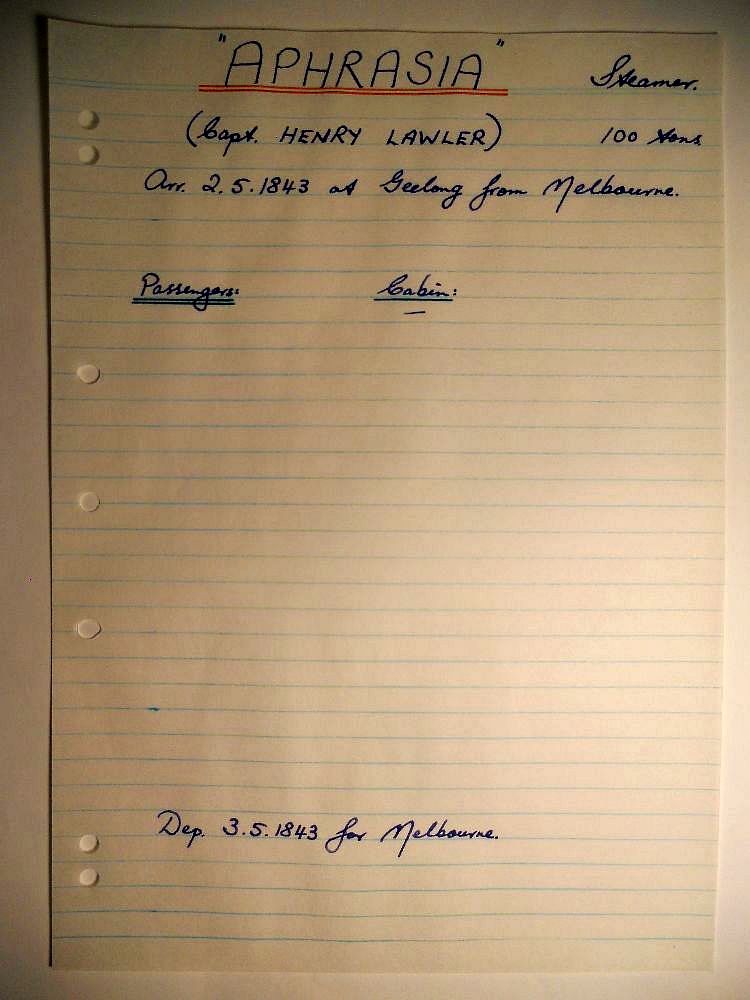 "APHRASIA" Steamer.
(Capt. HENRY LAWLER) 100 tons
Arr. 2.5.1843 at Geelong from Melbourne.
Passengers: Cabin:
Dep. 3.5.1843 for Melbourne.